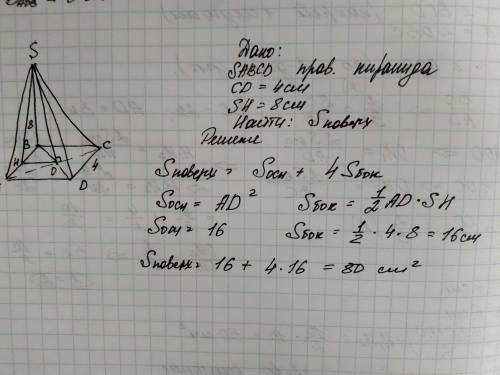 S
Дано:
SABCD прав. пирамида
CD = 4см
SH = 8см
Найти: Sповерх
Решение
8
B
C
H
O
4
D
Sповерх = Sосн + 4Sбок
Sосн = AD² Sбок = 1/2 AD · SH
Sосн = 16 Sбок = 1/2 · 4 · 8 = 16см
Sповерх = 16 + 4 · 16 = 80 см²